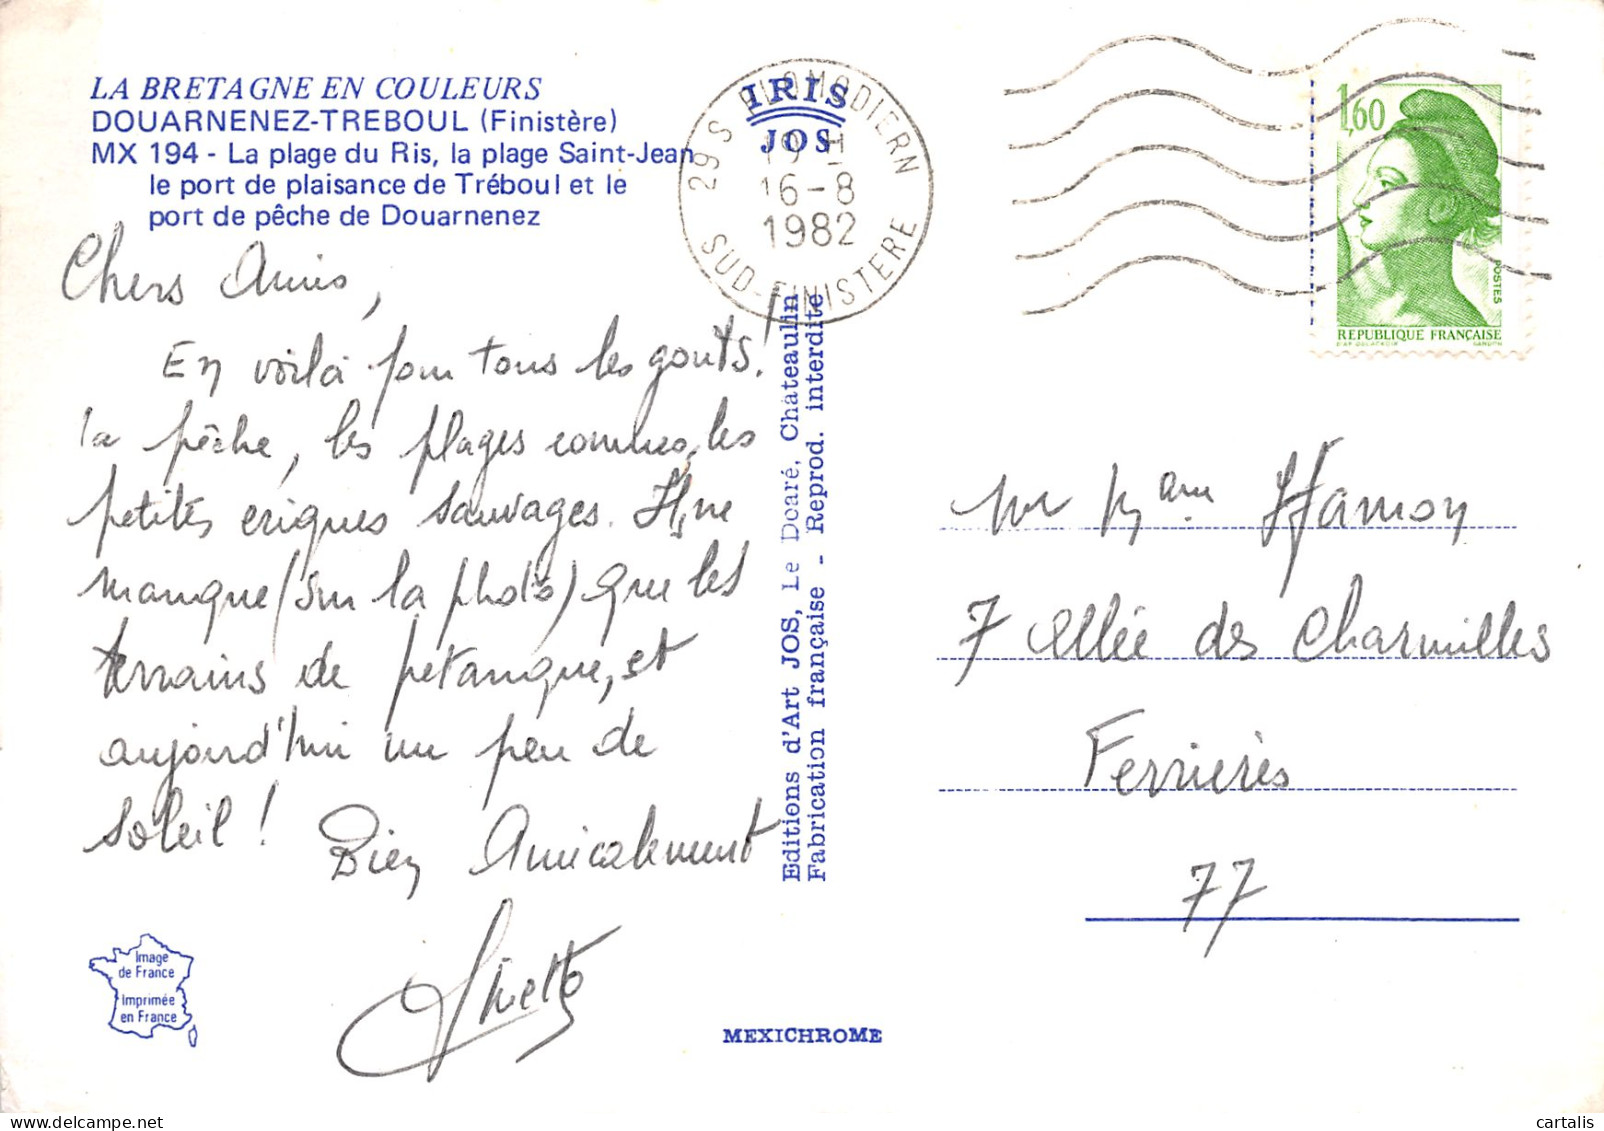 LA BRETAGNE EN COULEURS
DOUARNENEZ-TREBOUL (Finistère)
MX 194 - La plage du Ris, la plage Saint-Jean
le port de plaisance de Tréboul et le
port de pêche de Douarnenez
Chers Amis,
En voilà pour tous les gouts!
la pêche, les plages connues, les
petites criques sauvages. Il ne
manque (sur la photo) que les
terrains de pétanque, et
aujourd'hui un peu de
soleil !
Bien Amicalement
Image
de France
Imprimée
en France
IRIS
JOS
29 S PLOMODIERN
19 H
16-8
1982
SUD-FINISTERE
Editions d'Art JOS, Le Doaré, Châteaulin
Fabrication française - Reprod. interdite
MEXICHROME
1,60
POSTES
REPUBLIQUE FRANÇAISE
D'AP. DELACROIX
GANDON
Mr Mame Hamon
7 Allée des Charmilles
Ferrières
77
cartalis